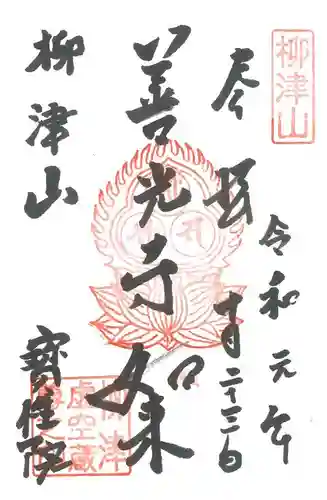 柳津山
奉拝
令和元年
十月二十三日
善光寺如来
柳津山
寳住院
柳津
虚空蔵